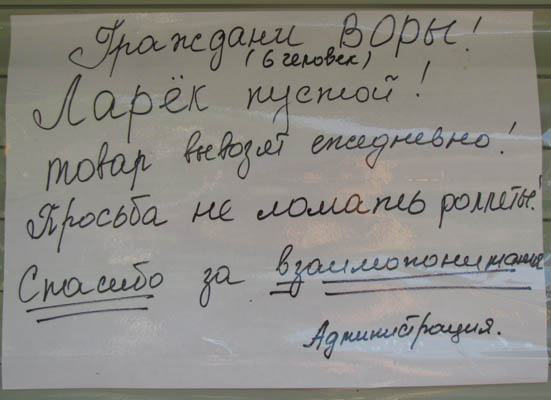 Граждани ВОРЫ!
(6 человек)
Ларёк пустой!
товар вывозят ежедневно!
Просьба не ломать роллеты!
Спасибо за взаимопонимание
Администрация.